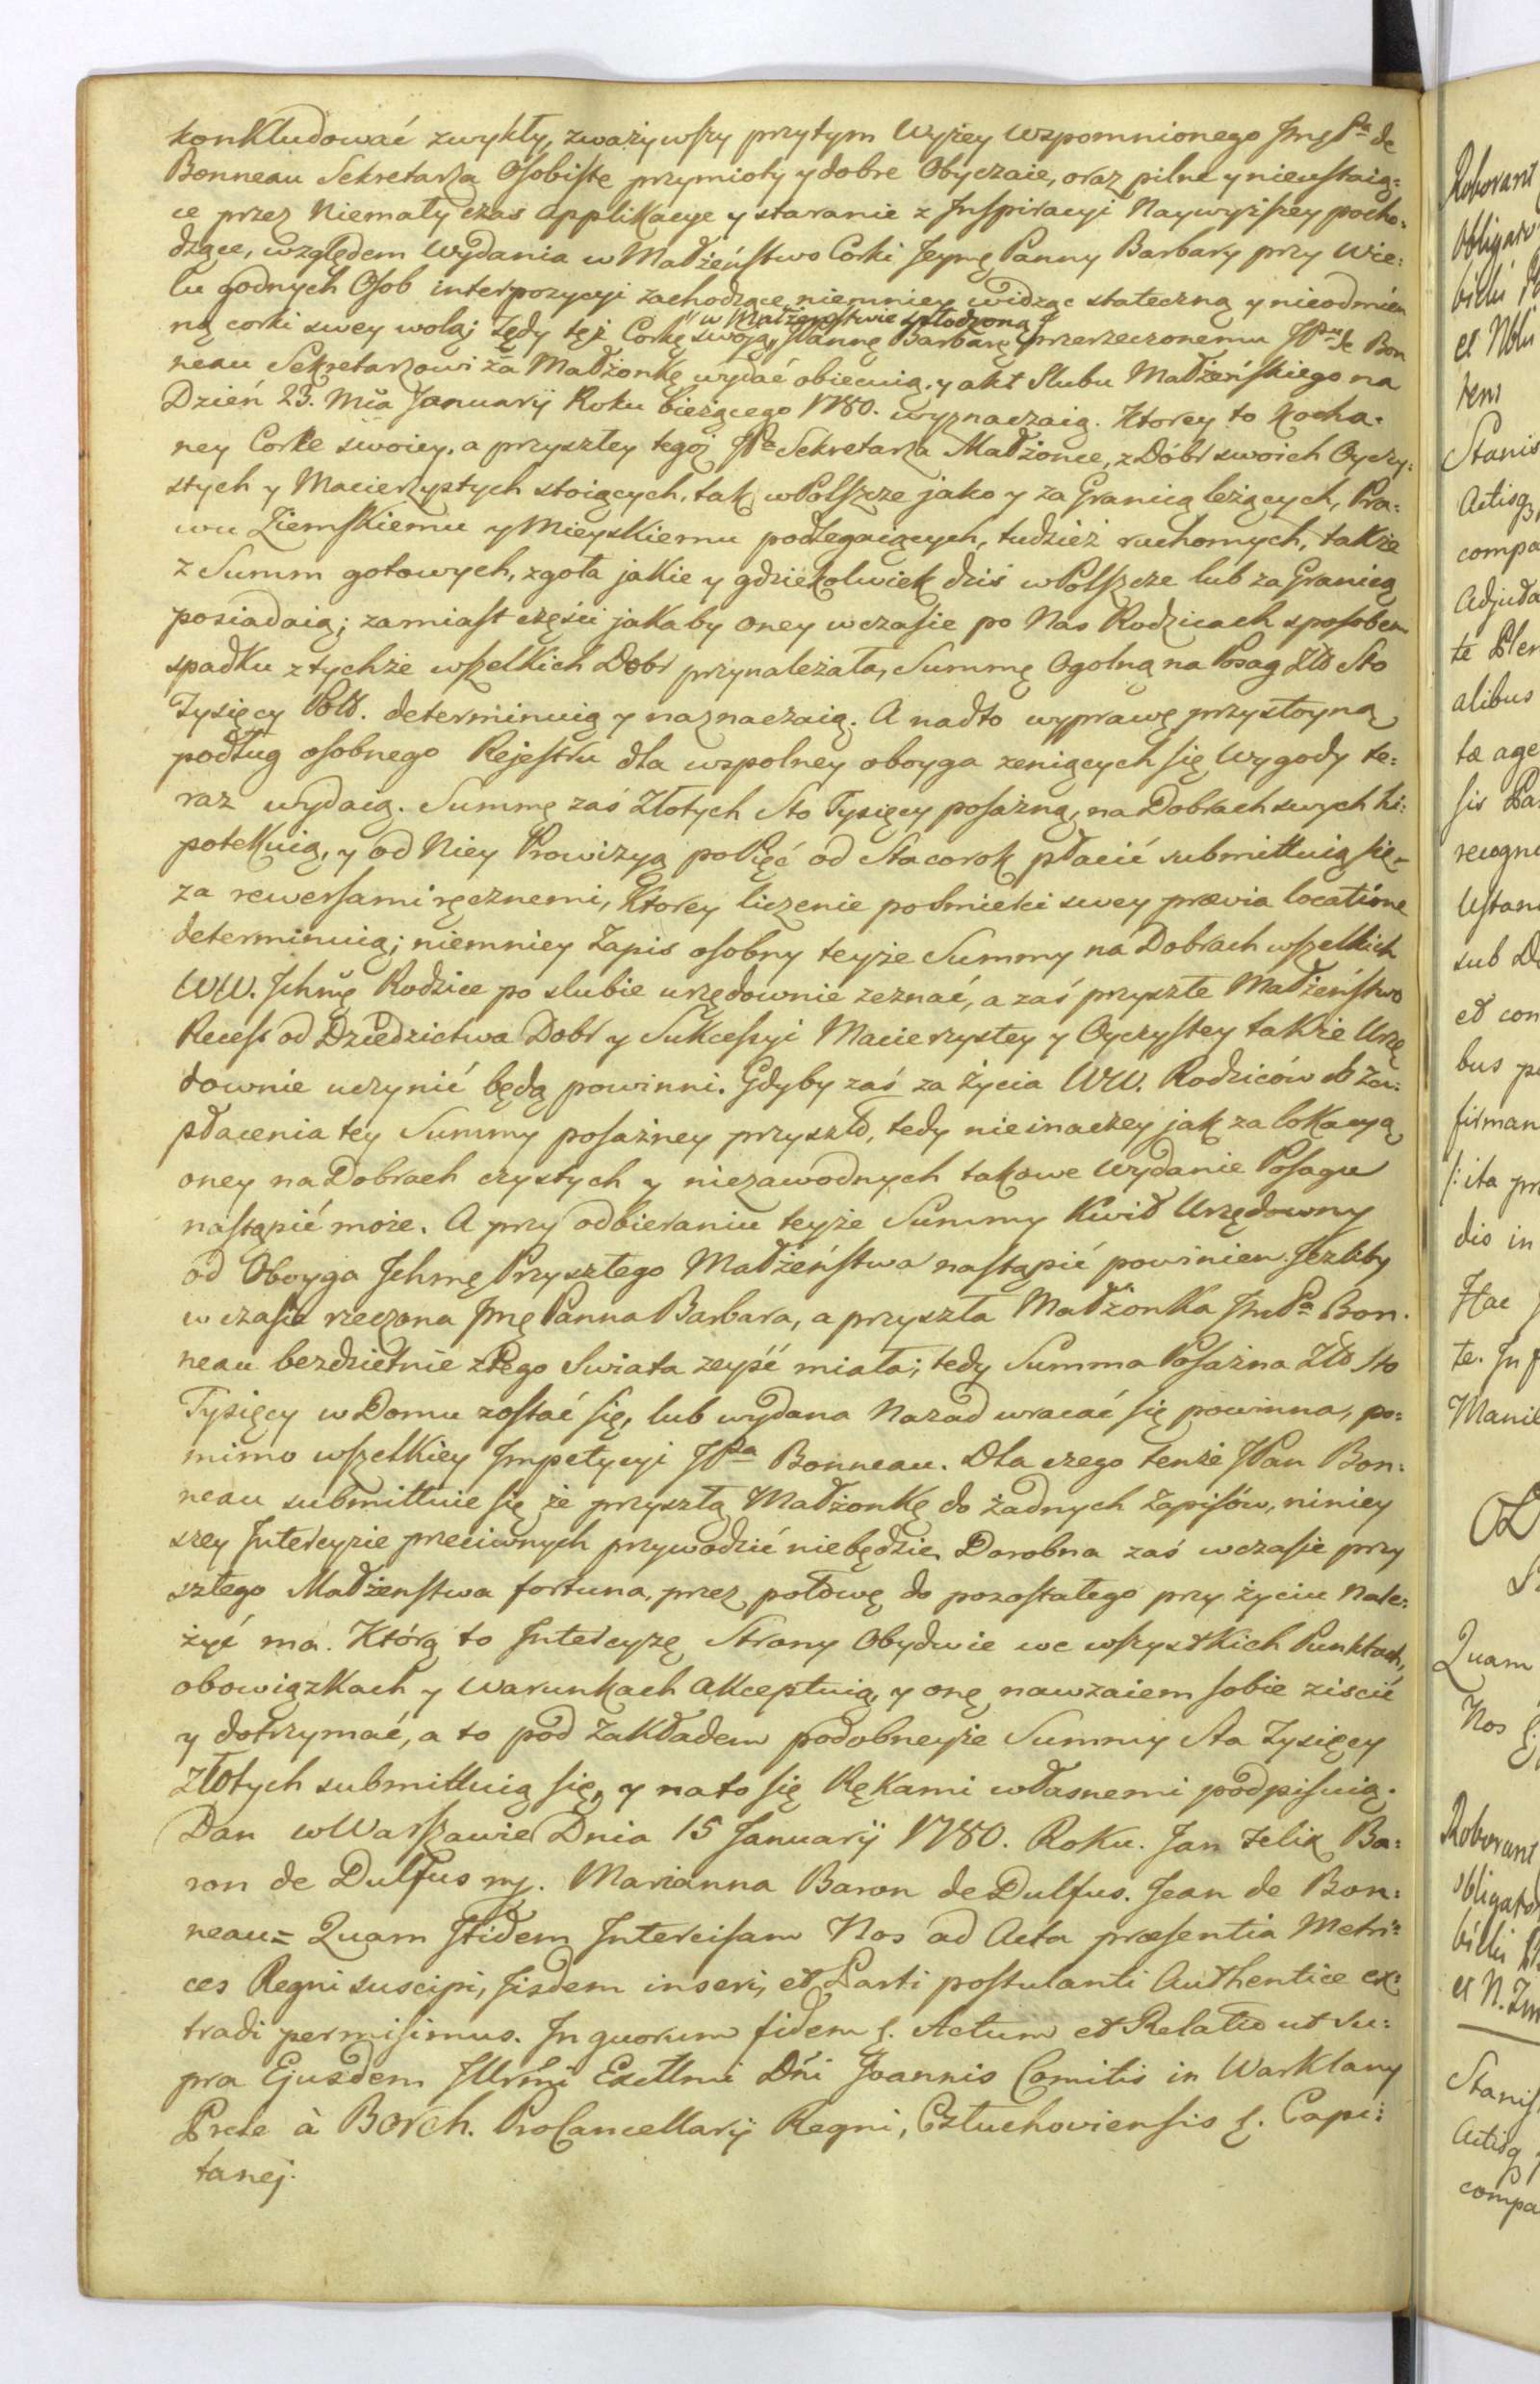 konkludować zwykły, zważywszy przytym Wyżey Wspomnionego Jmę Pa de
Bonneau Sekretarza Osobiste przymioty y dobre Obyczaie, oraz pilne y nieustaią=
ce przez Niemały czas applikacye y staranie z Inspiracyi Naywyższey pocho=
dzące, względem Wydania w Małżeństwo Corki Jeymę Panny Barbary przy Wie=
lu godnych Osob interpozycyi zachodzące, niemniey widząc stateczną y nieodmien
ną corki swey wolą; Tędy też Corkę swoją w Małżenstwie spłodzoną JPannę Barbarę przerzeczonemu JPnu de Bon
neau Sekretarzowi za Małżonkę wydać obiecuią, y akt Slubu Małżeńskiego na
Dzień 23. Mca Januarij Roku bieżącego 1780. wyznaczaią. Ktorey to Kocha=
ney Corce swoiey, a przyszłey tegoż JPa Sekretarza Małżonce, z Dóbr swoich Oyczy=
stych y Macierzystych stoiących, tak w Polszcze jako y za Granicą leżących, Pra=
wu Ziemskiemu y Mieyskiemu podlegaiących, tudzież ruchomych, także
z Summ gotowych, zgoła jakie y gdziekolwiek dziś w Polszcze lub za Granicą
posiadaią; zamiast części jakaby oney w czasie po Nas Rodzicach sposobem
spadku z tychże wszelkich Dobr przynależała, Summę Ogolną na Posag Złł Sto
Tysięcy Poll. determinuią y naznaczaią. A nadto wyprawę przystoyną
podług osobnego Rejestru dla wspolney oboyga żeniących się Wygody te=
raz wydaią. Summę zaś Złotych Sto Tysięcy posażną, na Dobrach swych hi=
potekuią, y od Niey Prowizyą po Pięć od Sta co rok płacić submittuią się
za rewersami ręcznemi, Ktorey liczenie po smierci swey prævia locatione
determinuią; niemniey Zapis osobny teyże Summy na Dobrach wszelkich
WW. Ichmę Rodzice po slubie urzędownie zeznać, a zaś przyszłe Małżeństwo
Recess od Dziedzictwa Dobr y Sukcessyi Macierzystey y Oyczystey także Urzę
downie uczynić będą powinni. Gdyby zaś za życia WW. Rodziców do Za=
płacenia tey Summy posażney przyszło, tedy nieinaczey jak za lokacyą
oney na Dobrach czystych y niezawodnych takowe Wydanie Posagu
nastąpić może. A przy odbieraniu teyże Summy Kwit Urzędowny
od Oboyga Ichmę Przyszłego Małżeństwa nastąpić powinien. Jeżliby
w czasie rzeczona Jmę Panna Barbara, a przyszła Małżonka JmPa Bon=
neau bezdzietnie z Tego Swiata zeyść miała; tedy Summa Posażna Złł Sto
Tysięcy w Domu zostać się, lub wydana Nazad wracać się powinna, po=
mimo wszelkiey Impetycyi JPa Bonneau. Dla czego tenże JPan Bon=
neau submittuie się że przyszłą Małżonkę do żadnych Zapisów, niniey
szey Intercyzie przeciwnych przywodzić niebędzie. Dorobna zaś w czasie przy
szłego Małżenstwa fortuna, przez połowę do pozostałego przy życiu Nale=
żyć ma. Którą to Intercyzę Strony Obydwie we wszystkich Punktach,
obowiązkach y Warunkach Akceptuią, y onę nawzaiem sobie ziscić
y dotrzymać, a to pod Zakładem podobneyże Summy Sta Tysięcy
Złotych submittuią się, y na to się Rękami własnemi podpisuią.
Dan w Warszawie Dnia 15 Januarij 1780. Roku. Jan Felix Ba=
ron de Dulfus mp. Marianna Baron de Dulfus. Jean de Bon=
neau= Quam Itidem Intercisam Nos ad Acta præsentia Metri=
ces Regni suscipi, Iisdem inseri, et Parti postulanti Authentice ex=
tradi permisimus. In quorum fidem &. Actum et Relatio ut su=
pra Ejusdem Illrmi Excllmi Dni Joannis Comitis in Warklany
Prele à Borch. ProCancellarij Regni, Człuchoviensis &. Capi=
tanej.